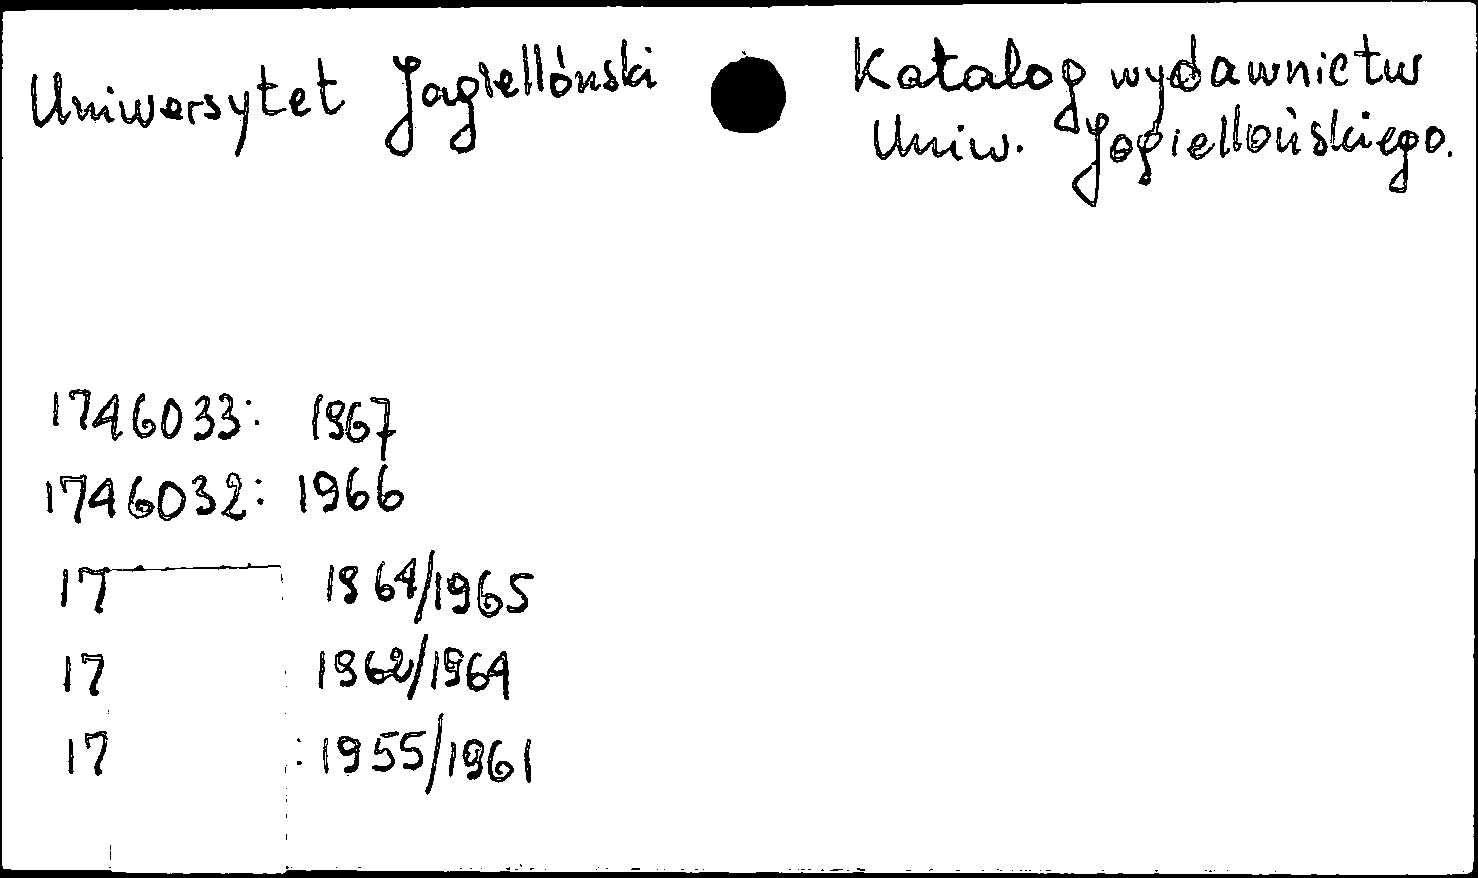 Uniwersytet Jagiellónski
Katalog wydawnictw
Uniw. Jagiellońskiego.
1746033: 1967
1746032: 1966
17 1964/1965
17 1962/1964
17 : 1955/1961